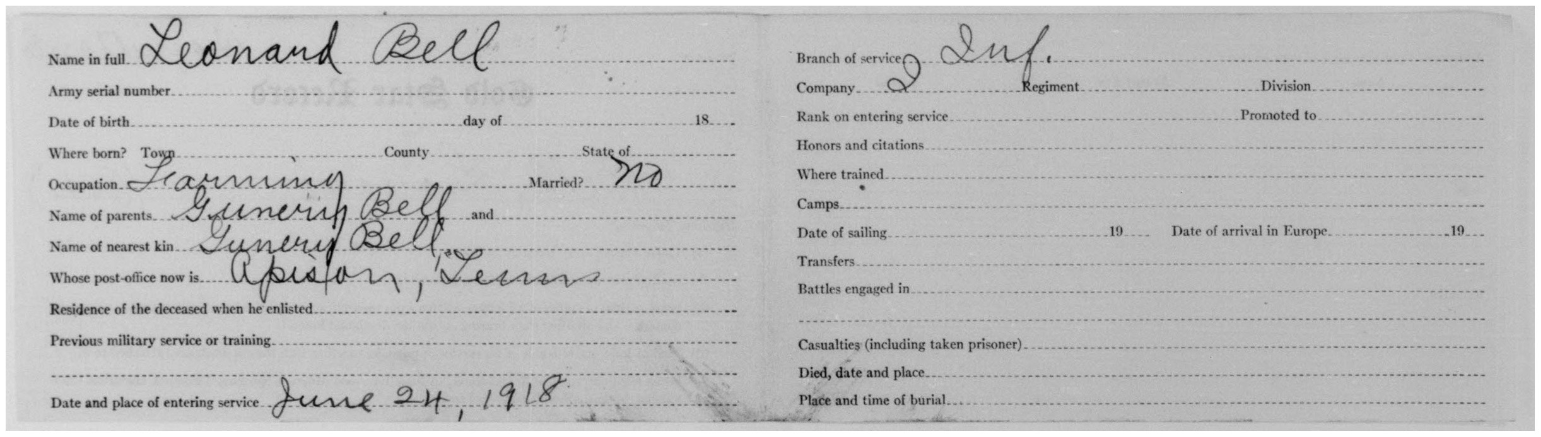 Name in full Leonard Bell
Army serial number
Date of birth day of 18
Where born? Town County State of
Occupation Farming Married? No
Name of parents Gunery Bell and
Name of nearest kin Gunery Bell
Whose post-office now is Apison, Tenn
Residence of the deceased when he enlisted
Previous military service or training
Date and place of entering service June 24, 1918
Branch of service Inf.
Company I Regiment Division
Rank on entering service Promoted to
Honors and citations
Where trained
Camps
Date of sailing 19 Date of arrival in Europe 19
Transfers
Battles engaged in
Casualties (including taken prisoner)
Died, date and place
Place and time of burial